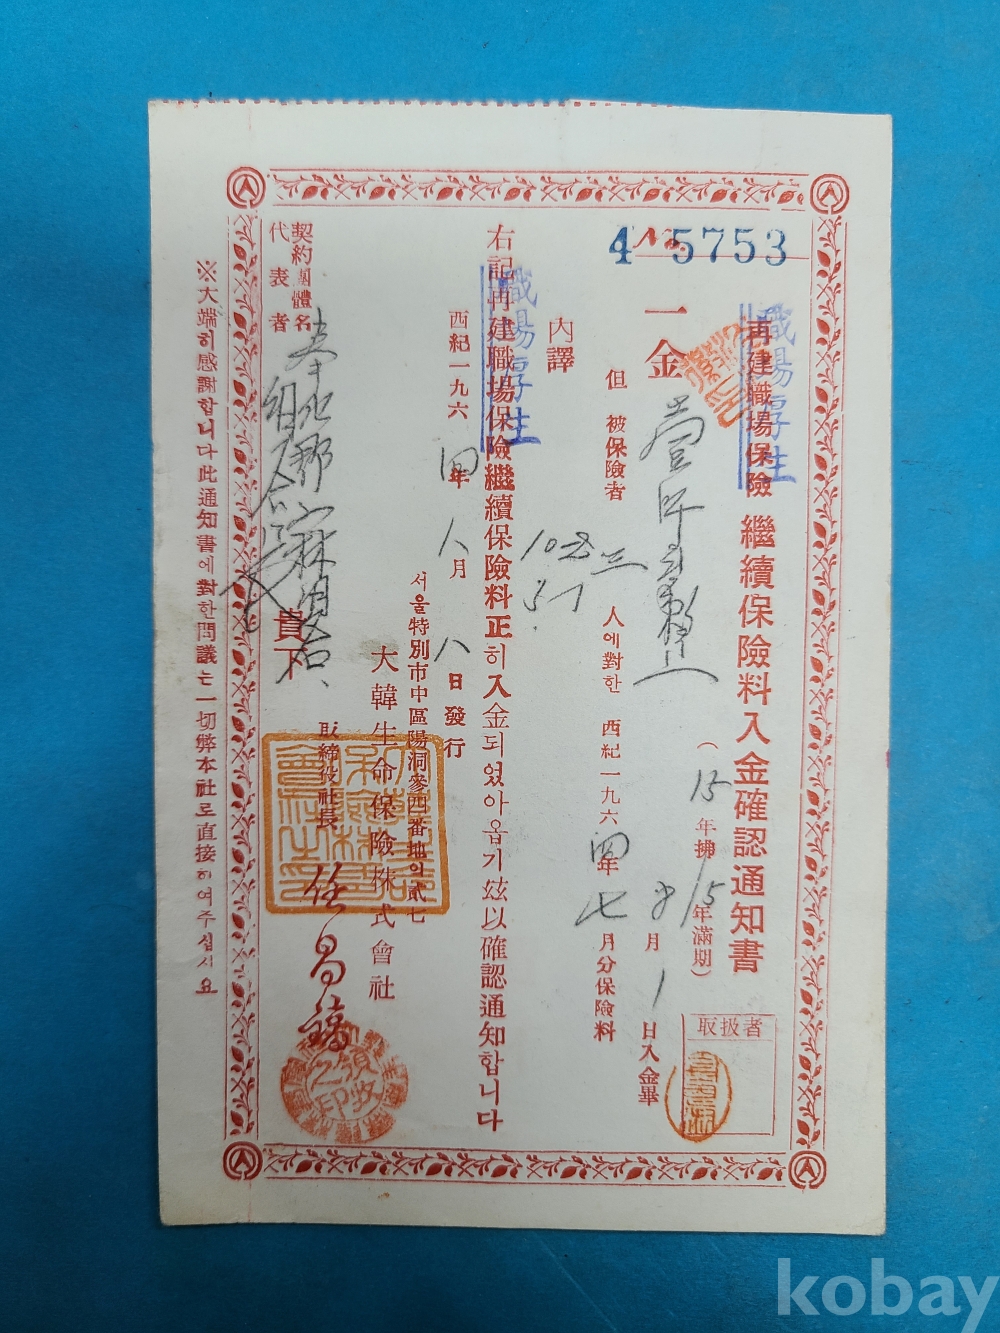 4 No. 5753
再建職場保險 繼續保險料入金確認通知書
職場厚生
(15年拂 15年滿期)
取扱者
一金 壹阡
但 被保險者 三 人에對한 西紀一九六四年 七 月分保險料
月 1 日入金畢
內譯
右記再建職場保險繼續保險料正히入金되였아옵기玆以確認通知합니다
職場厚生
西紀一九六四年 八月 八日 發行
서울特別市中區陽洞參四番地의貳七
大韓生命保險株式會社
取締役社長 任昌鎬
領收
之印
契約團體名 奉化郡
代表者 組合長
貴下
※大端히感謝합니다此通知書에對한問議는一切弊本社로直接하여주십시요
kobay